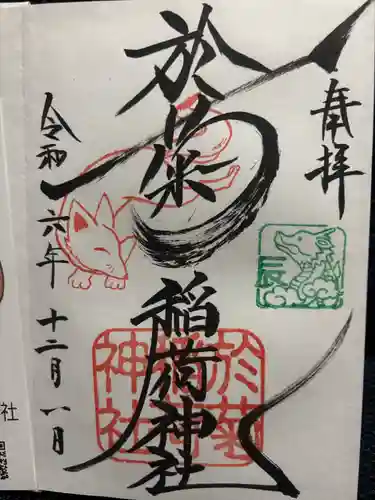 奉拝
於菊稲荷神社
辰
於菊
稲荷
神社
令和六年十二月八日
社